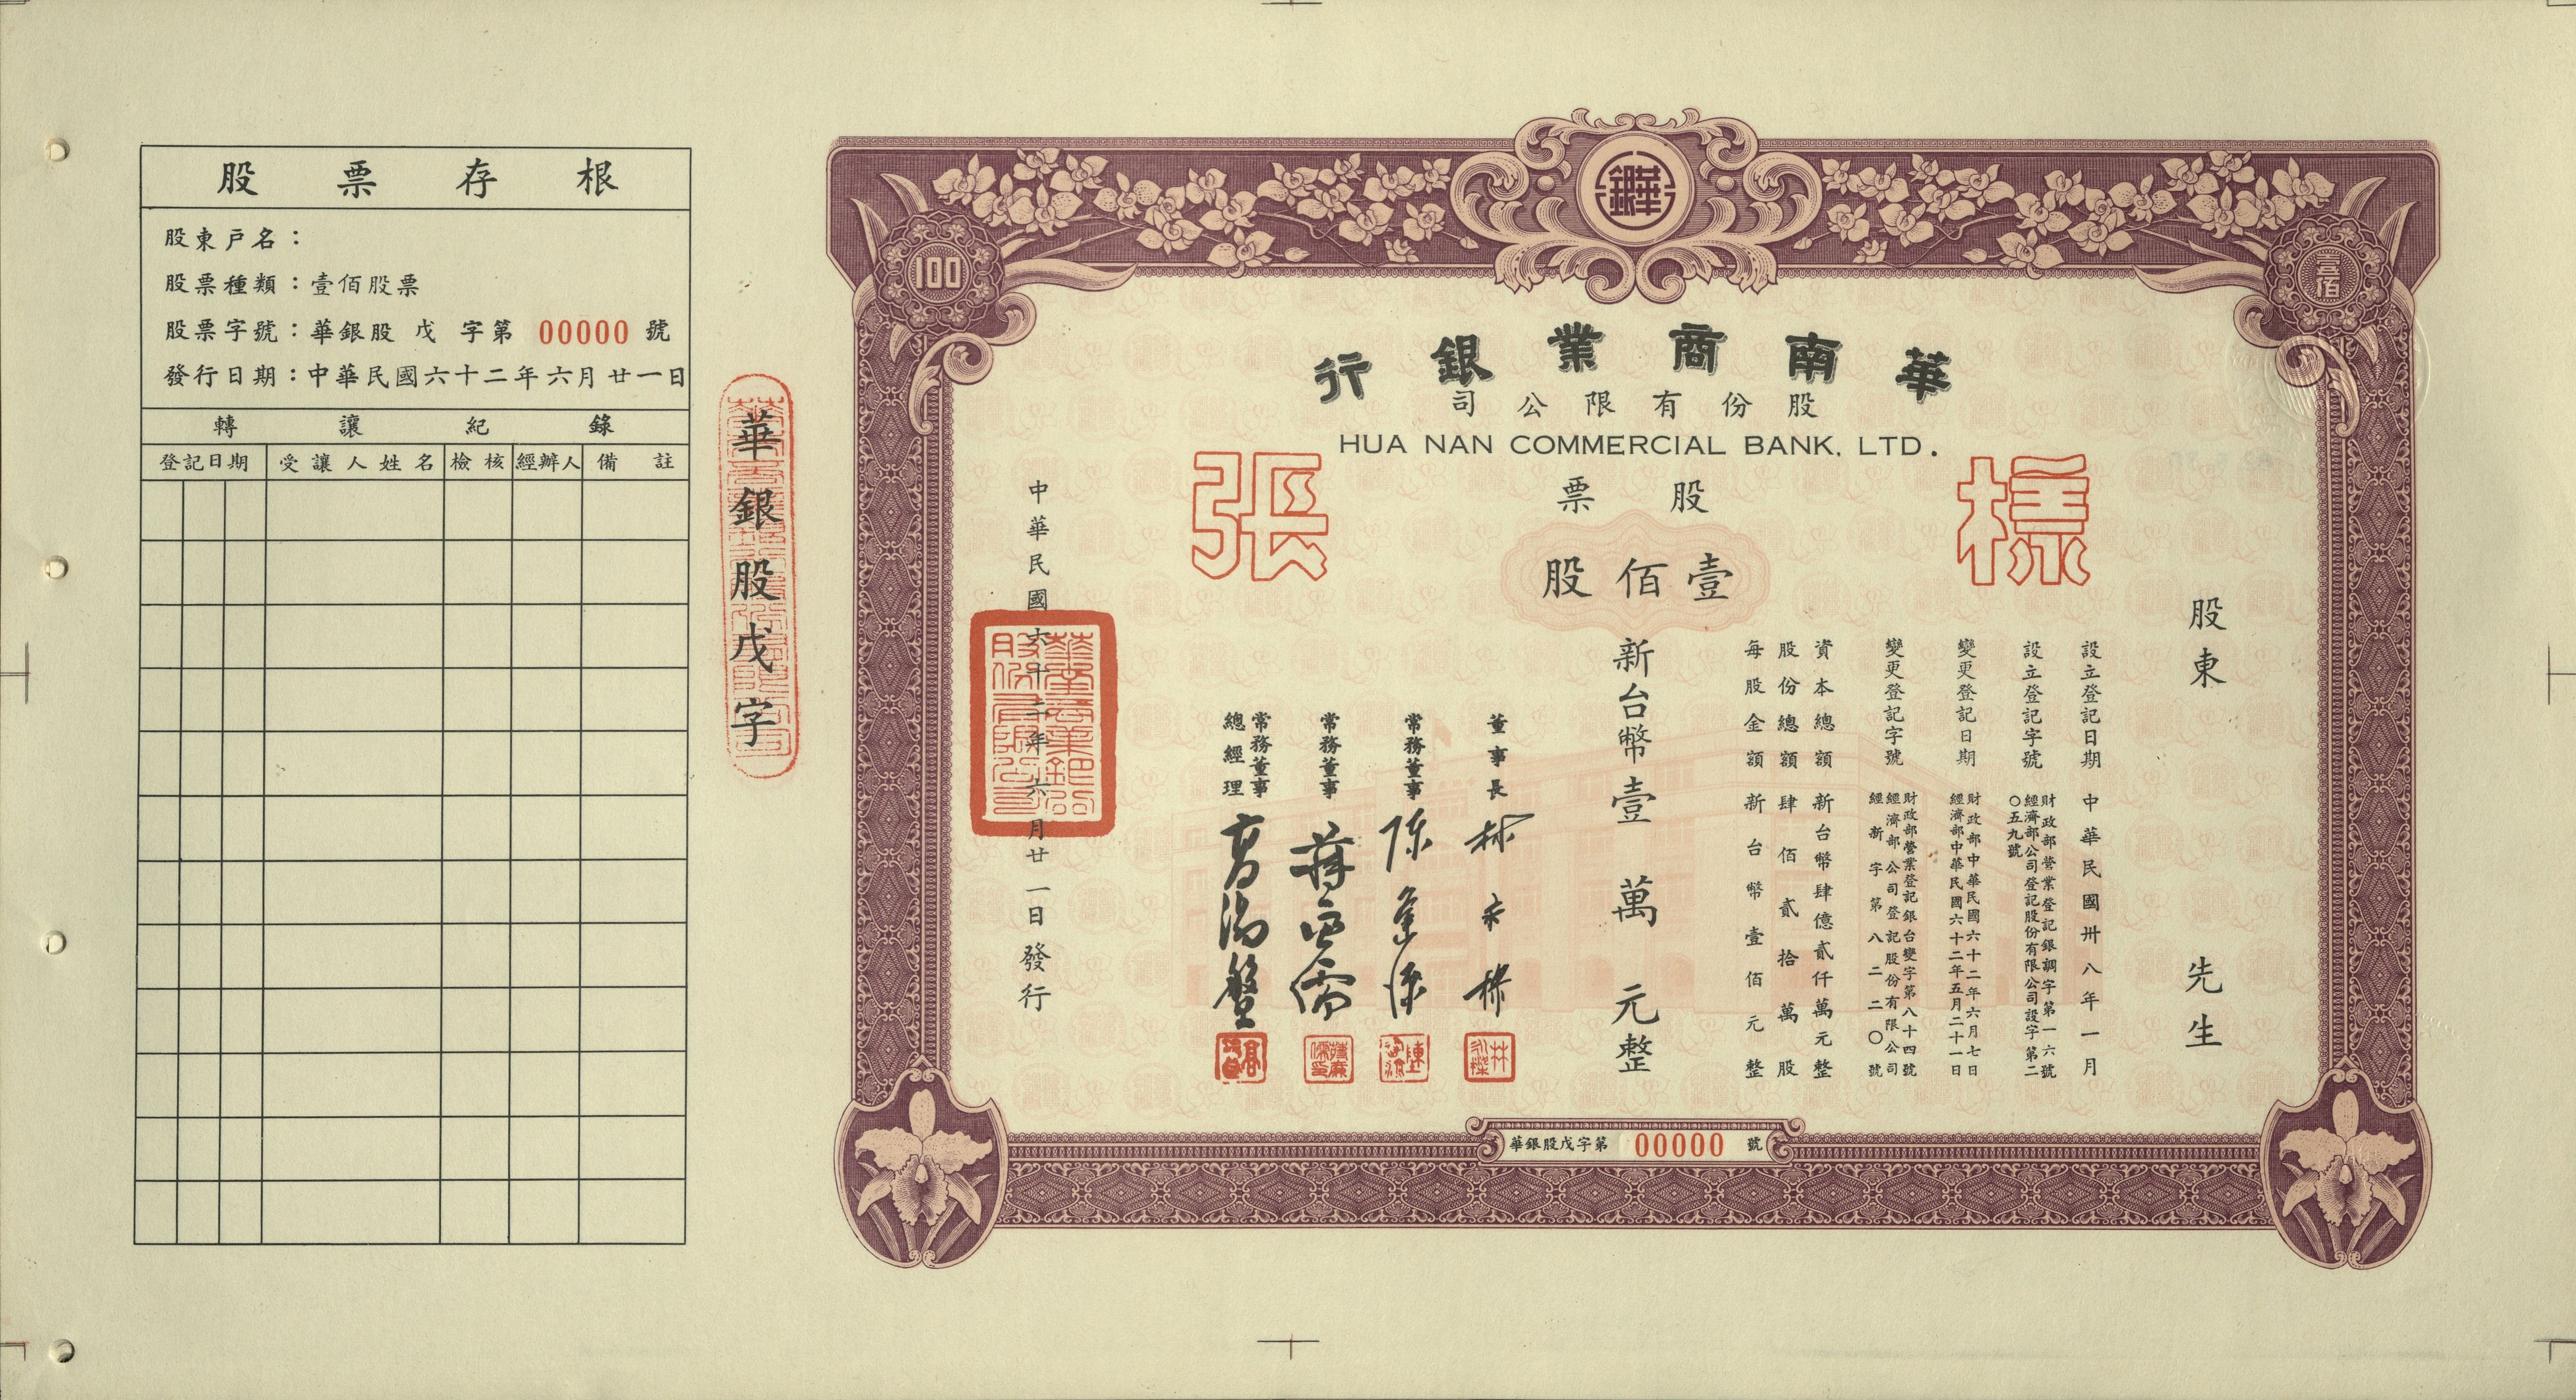 股票存根
股東戶名：
股票種類：壹佰股票
股票字號：華銀股 戊 字第 00000 號
發行日期：中華民國六十二年六月廿一日
轉讓紀錄
登記日期 受讓人姓名 檢核 經辦人 備註
華銀股戊字
100
壹佰
華銀
華南商業銀行
股份有限公司
HUA NAN COMMERCIAL BANK, LTD.
樣張
股票
壹佰股
股東 先生
設立登記日期 中華民國卅八年一月
設立登記字號 財政部營業登記銀調字第一六號
經濟部公司登記股份有限公司設字第二
〇五九號
變更登記日期 財政部中華民國六十二年六月七日
經濟部中華民國六十二年五月二十一日
變更登記字號 財政部營業登記銀台變字第八十四號
經濟部公司登記股份有限公司
經新字第八二二〇號
資本總額 新台幣肆億貳仟萬元整
股份總額 肆佰貳拾萬股
每股金額 新台幣壹佰元整
新台幣壹萬元整
董事長 林永樑
常務董事 陳逢源
常務董事
常務董事
總經理
中華民國六十二年六月廿一日發行
華南商業銀行股份有限公司
華銀股戊字第 00000 號